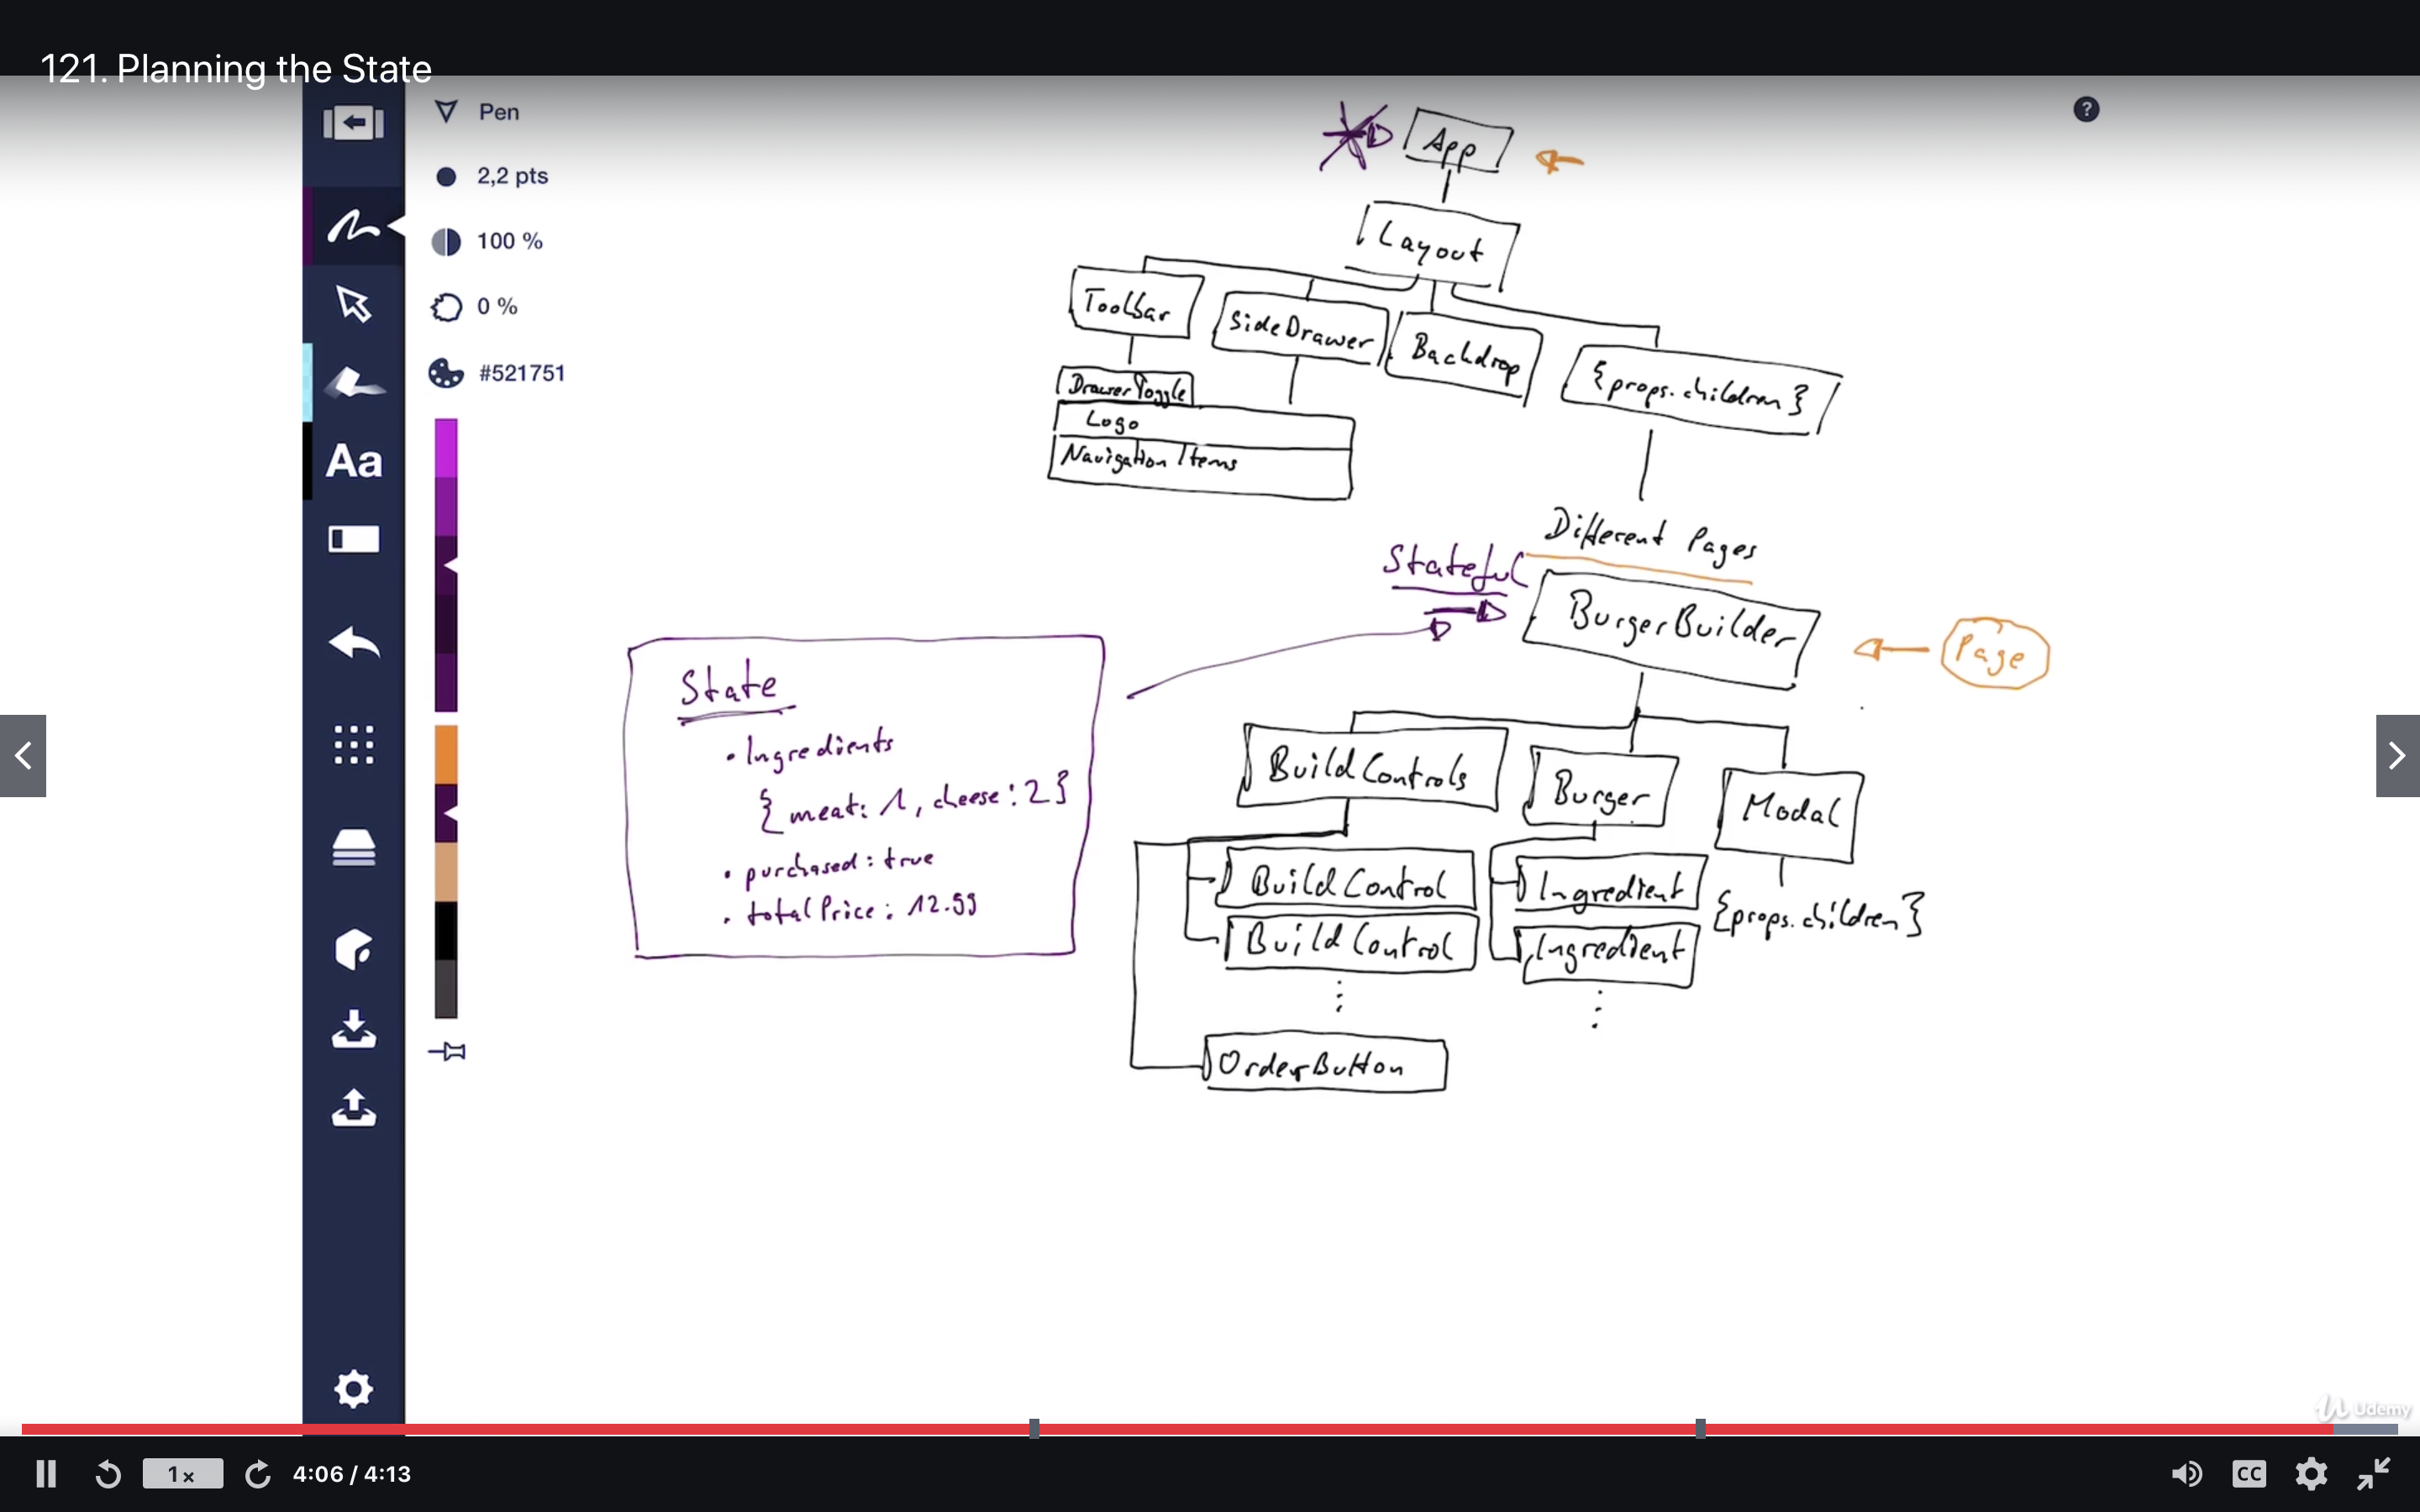 121. Planning the State
Pen
2,2 pts
100 %
0 %
#521751
Aa
?
App
Layout
Toolbar
SideDrawer
Backdrop
{props.children}
DrawerToggle
Logo
Navigation Items
Different Pages
Stateful
BurgerBuilder
Page
State
• Ingredients
{ meat: 1, cheese: 2 }
• purchased: true
• totalPrice: 12.99
BuildControls
Burger
Modal
BuildControl
Ingredient
{props.children}
BuildControl
Ingredient
OrderButton
Udemy
1x
4:06 / 4:13
CC